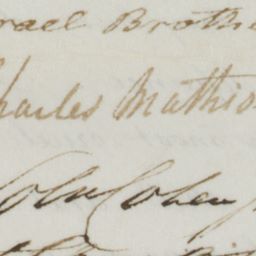 rael Brothe
Charles Mathio
John Cohen